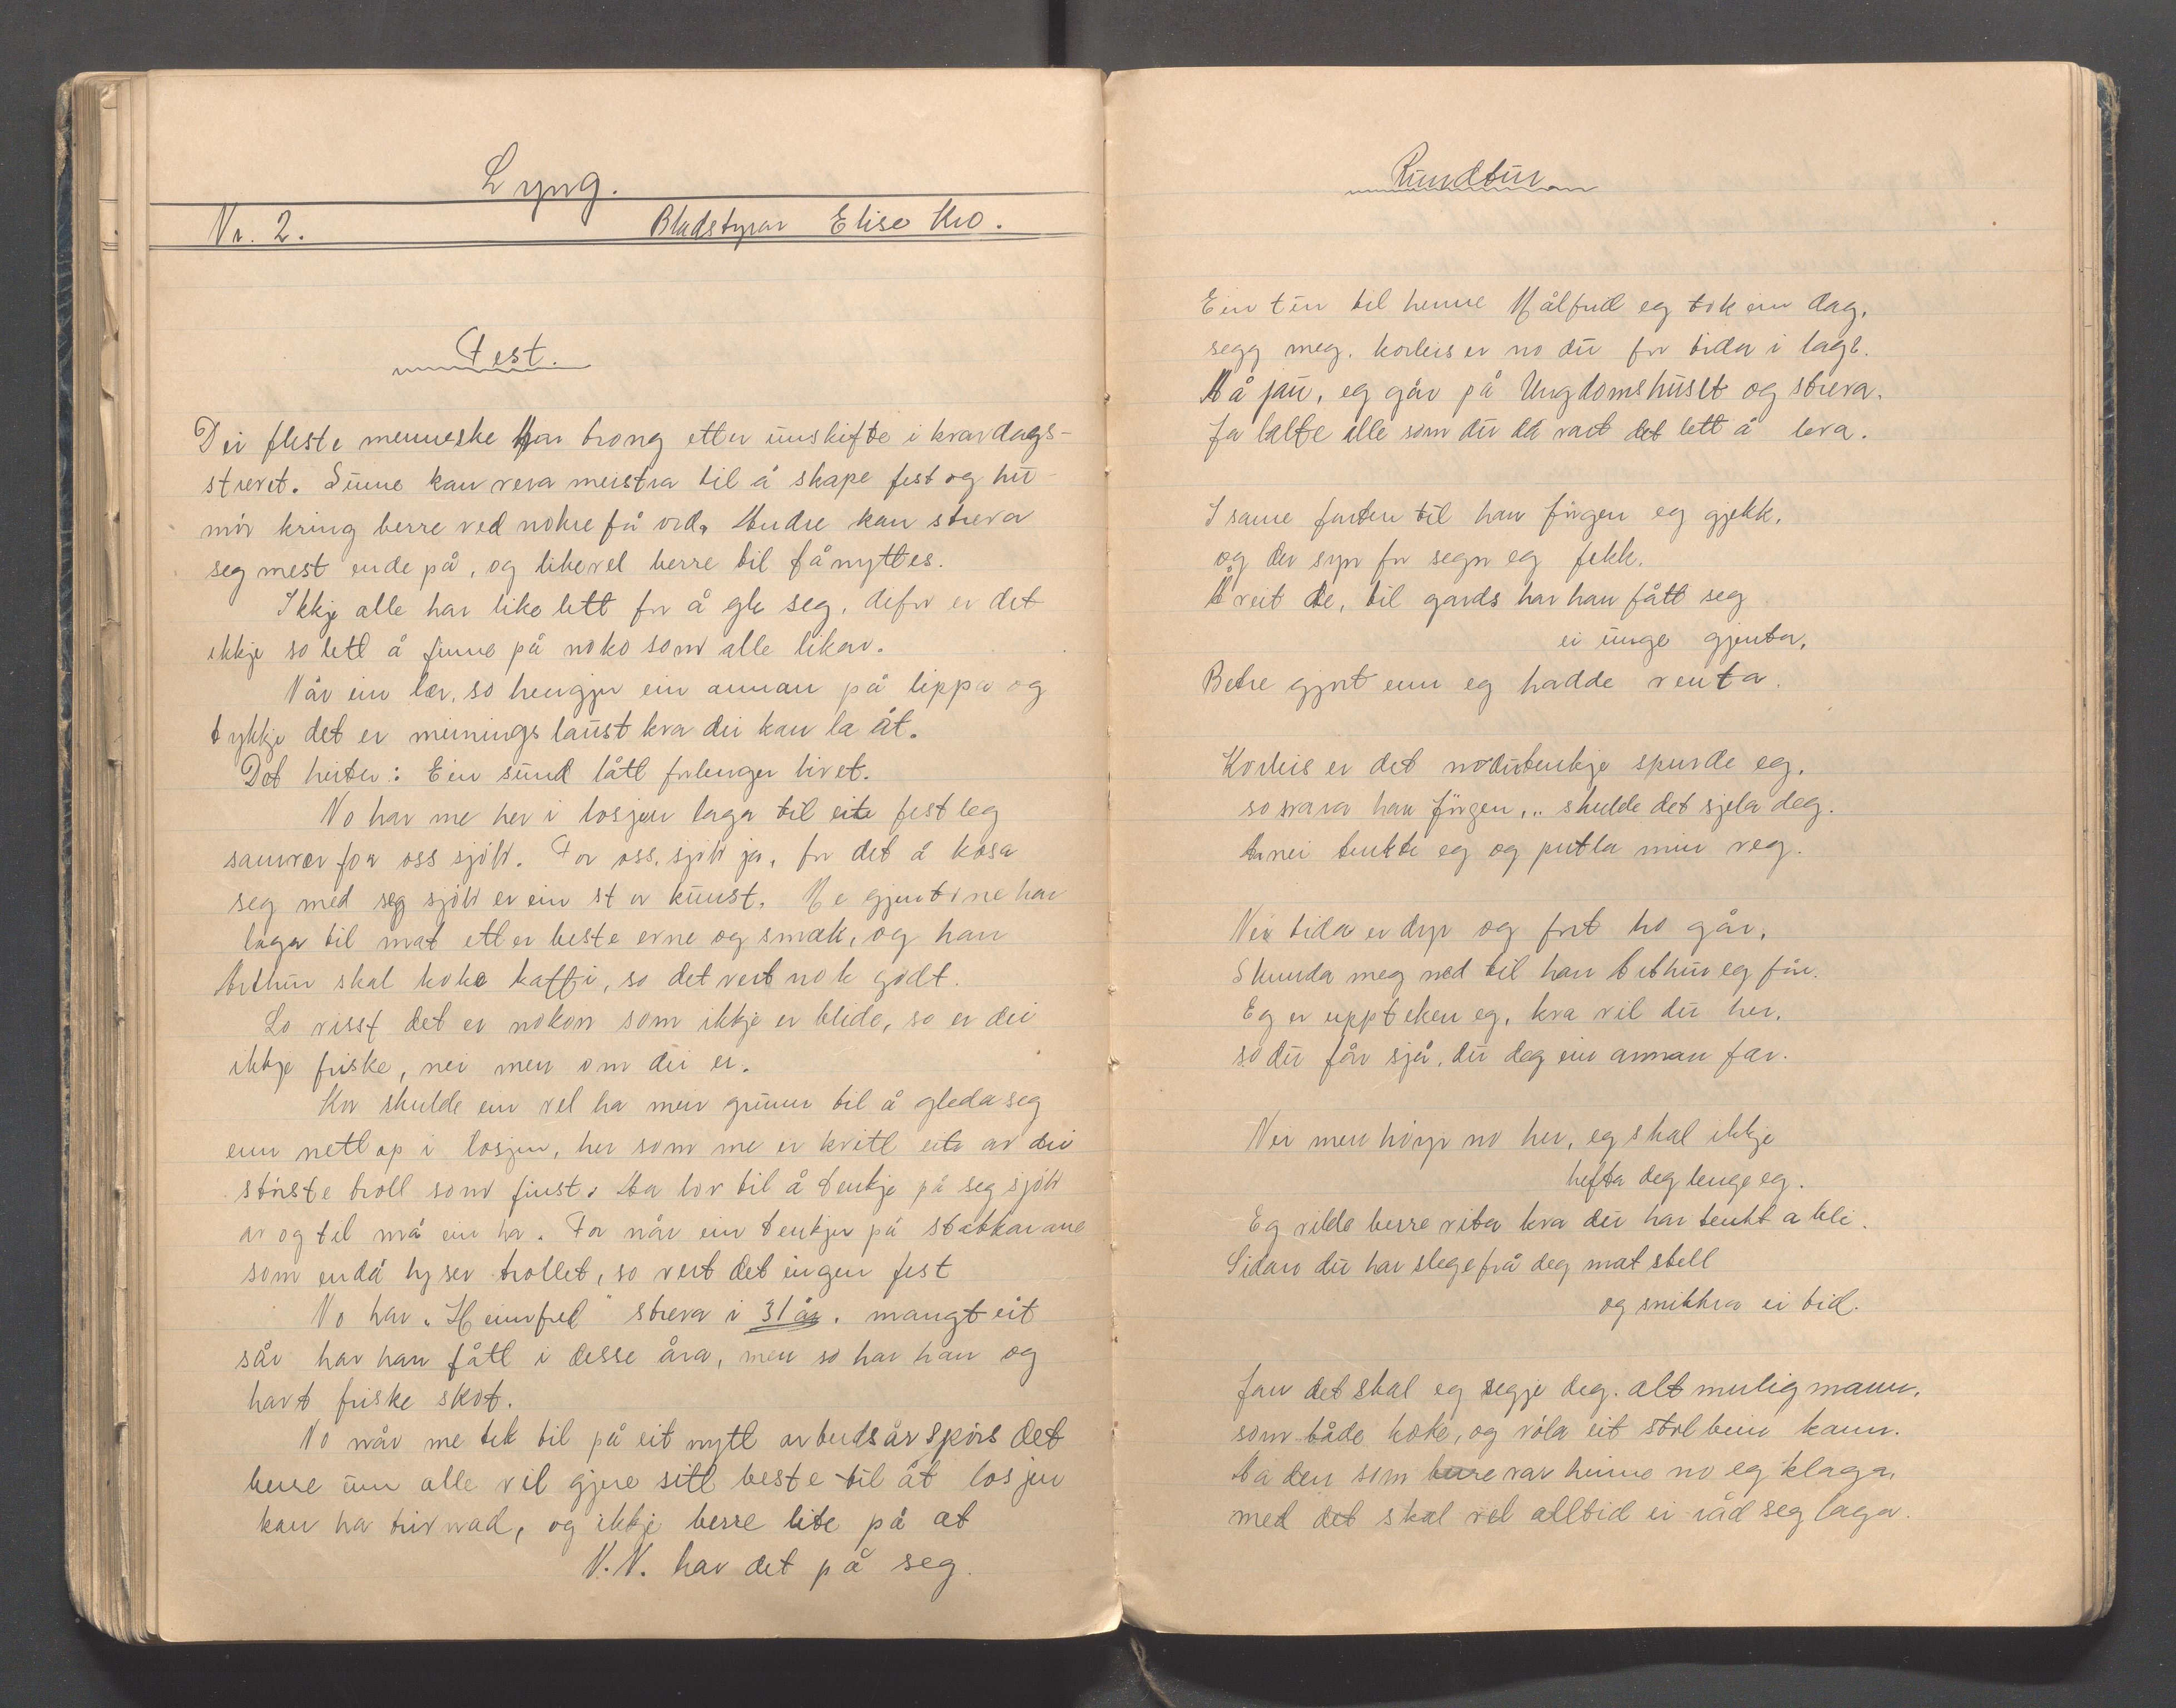 Lyng.
Nr. 2. Bladstyrar Elise Kro.
Fest.
Dei fleste menneske har trong etter umskifte i kvardags-
strevet. Sume kan vera meistra til å skape fest og hu-
mør kring berre ved nokre få ord. Andre kan streva
seg mest ende på, og likevel berre til fånyttes.
Ikkje alle har like lett for å gle seg, defor er det
ikkje so lett å finne på noko som alle likar.
Når ein lær, so hengjer ein annan på lippa og
tykkje det er meiningslaust kva dei kan la åt.
Det heiter: Ein sund lått forlenger livet.
No har me her i losjen laga til eite festleg
samvær for oss sjølv. For oss sjølv ja, for det å kosa
seg med seg sjølv er ein stor kunst. Me gjentone har
laga til mat etter beste evne og smak, og han
Arthur skal koke kaffi, so det vert nok godt.
So visst det er nokon som ikkje er blide, so er dei
ikkje friske, nei men om dei er.
Kor skulde ein vel ha meir grunn til å gleda seg
enn nettop i losjen, her som me er kvitt eite av dei
største troll som finst. Ha lov til å tenkje på seg sjølv
av og til må ein ha. For når ein tenkjer på stakkarane
som endå hyser trollet, so vert det ingen fest
No har "Heimfred" streva i 31 år. mangt eit
sår har han fått i desse åra, men so har han og
havt friske skot.
No når me tek til på eit nytt arbeidsår spørs det
berre um alle vil gjere sitt beste til åt losjen
kan ha trivnad, og ikkje berre lite på at
N.N. har det på seg.
Rundtur
Ein tur til henne Målfrid eg tok ein dag,
segg meg. korleis er no du for tida i lag?
Å jau, eg går på Ungdomshuset og streva.
fa lalte ille som du då vart det lett å leva.
I same farten til han Jørgen eg gjekk,
og der syn for segn eg fekk.
Å veit de, til gards har han fått seg
ei unge gjenta,
Betre gjort enn eg hadde venta.
Korleis er det no du tenkje spurde eg,
so svara han Jørgen, "skulde det sjela deg.
Å nei tenkte eg og putla min veg.
Nei tida er dyr og fort ho går,
Skunda meg ned til han Arthur eg får.
Eg er uppteken eg, kva vil du her,
so du får sjå, du deg ein annan far.
Nei men høyr no her, eg skal ikkje
hefta deg lenge eg.
Eg vilde berre vita kva du har tenkt å bli.
Sidan du har slege frå deg matstell
og snikkra ei tid.
Jau det skal eg segje deg. altmulig mann,
som både koke, og vøla eit stolbein kann.
Ha den som berre var heime no eg klaga,
med det skal vel alltid ei råd seg laga.